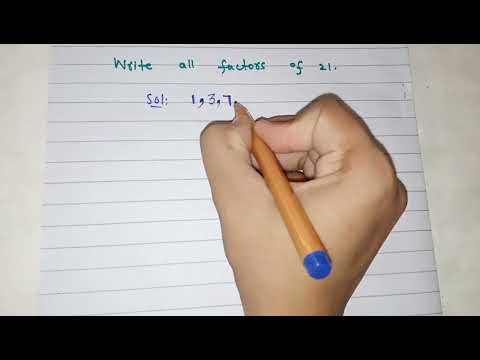 Write all factors of 21.
Sol: 1,3,7,